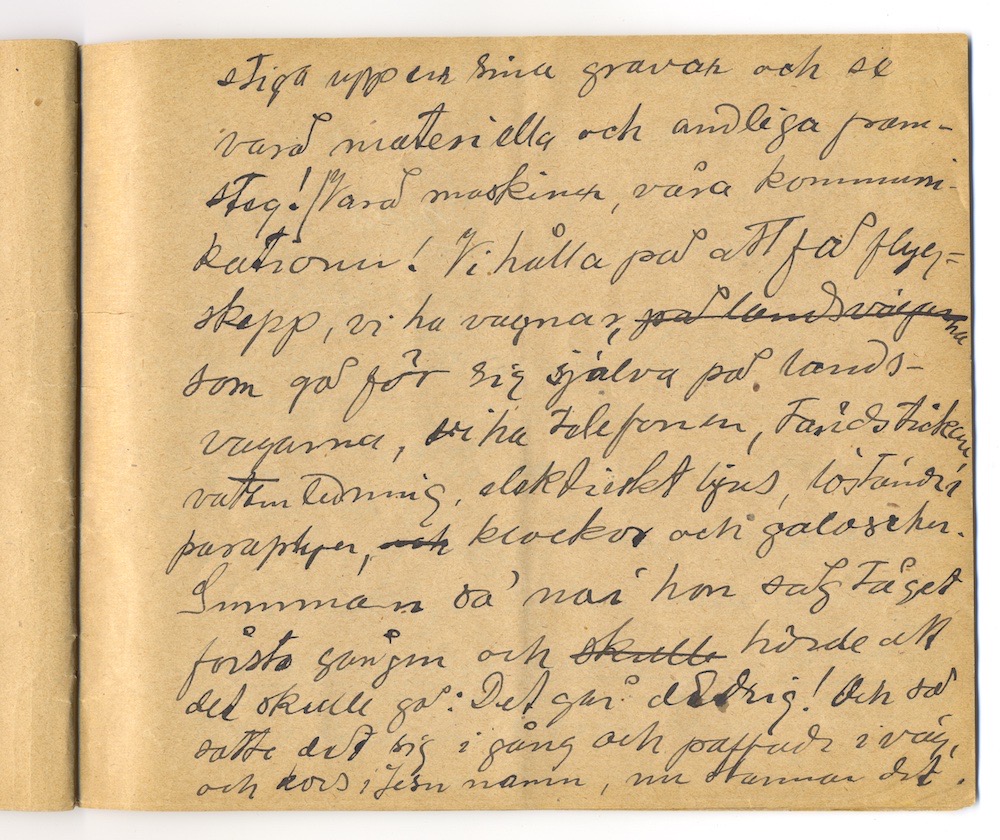 stiga upp ur sina gravar och se
vara materiella och andliga fram-
steg! Vara maskiner, våra kommuni-
kationer! Vi hålla på att få flyg-
skepp, vi ha vagnar, på landsvägarna
som gå för sig själva på lands-
vägarna, vi ha telefonen, tändstickan,
vattenledning, elektriskt ljus, löständer
paraplyer, och klockor och galoscher.
Gumman sa' när hon såg tåget
första gången och skulle hörde att
det skulle gå: Det går aldrig! Och så
satte det sig i gång och paffade i väg,
och kors i Jesu namn, nu stannar det.